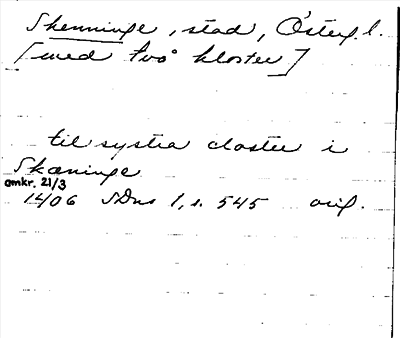 Skenninge, stad, Österg.l.
[med två kloster]
til systra closter i
Skæninge
omkr. 21/3
1406 SDns 1, s. 545 orig.